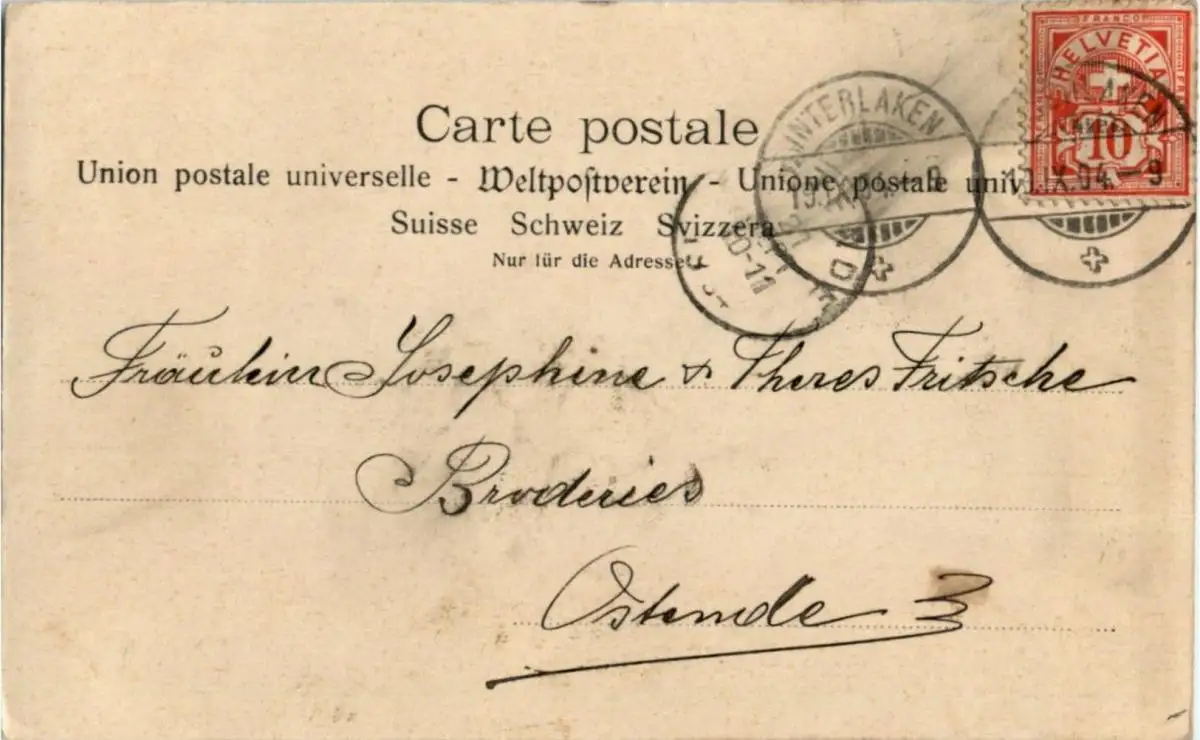 FRANCO
HELVETIA
10
INTERLAKEN
19.IX.04.-9
Carte postale
Union postale universelle - Weltpostverein - Unione postale univ
Suisse Schweiz Svizzera
Nur für die Adresse
10-11
Fräulein Josephine & Theres Fritsche
Broderies
Ostende